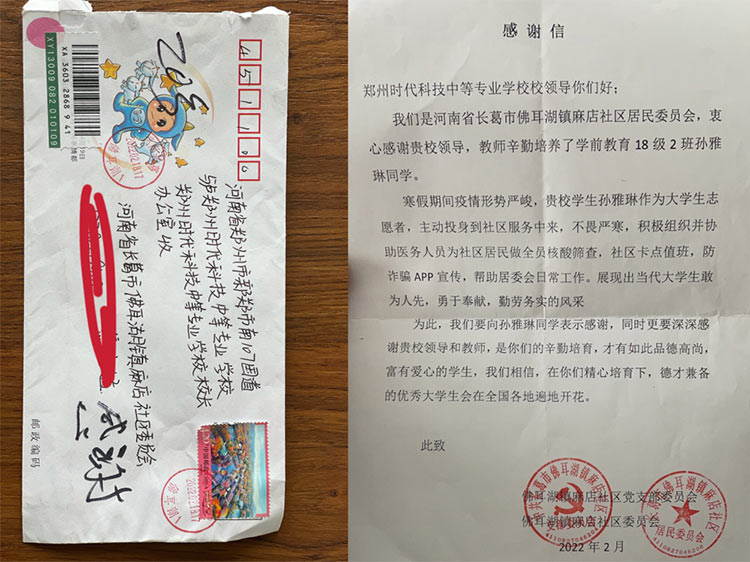 XA 3603 2868 9 41
XY13009 082 010109
451100
2022.02.18.17
河南省郑州市新郑市南107国道
郑州时代科技中等专业学校
郑州时代科技中等专业学校校长
办公室 收
河南省长葛市佛耳湖镇麻店社区委员会
邮政编码
感谢信
郑州时代科技中等专业学校校领导你们好;
我们是河南省长葛市佛耳湖镇麻店社区居民委员会，衷
心感谢贵校领导，教师辛勤培养了学前教育18级2班孙雅
琳同学。
寒假期间疫情形势严峻，贵校学生孙雅琳作为大学生志
愿者，主动投身到社区服务中来，不畏严寒，积极组织并协
助医务人员为社区居民做全员核酸筛查，社区卡点值班，防
诈骗APP宣传，帮助居委会日常工作。展现出当代大学生敢
为人先，勇于奉献，勤劳务实的风采
为此，我们要向孙雅琳同学表示感谢，同时更要深深感
谢贵校领导和教师，是你们的辛勤培育，才有如此品德高尚，
富有爱心的学生，我们相信，在你们精心培育下，德才兼备
的优秀大学生会在全国各地遍地开花。
此致
佛耳湖镇麻店社区党支部委员会
佛耳湖镇麻店社区委员会
2022年2月
居民委员会